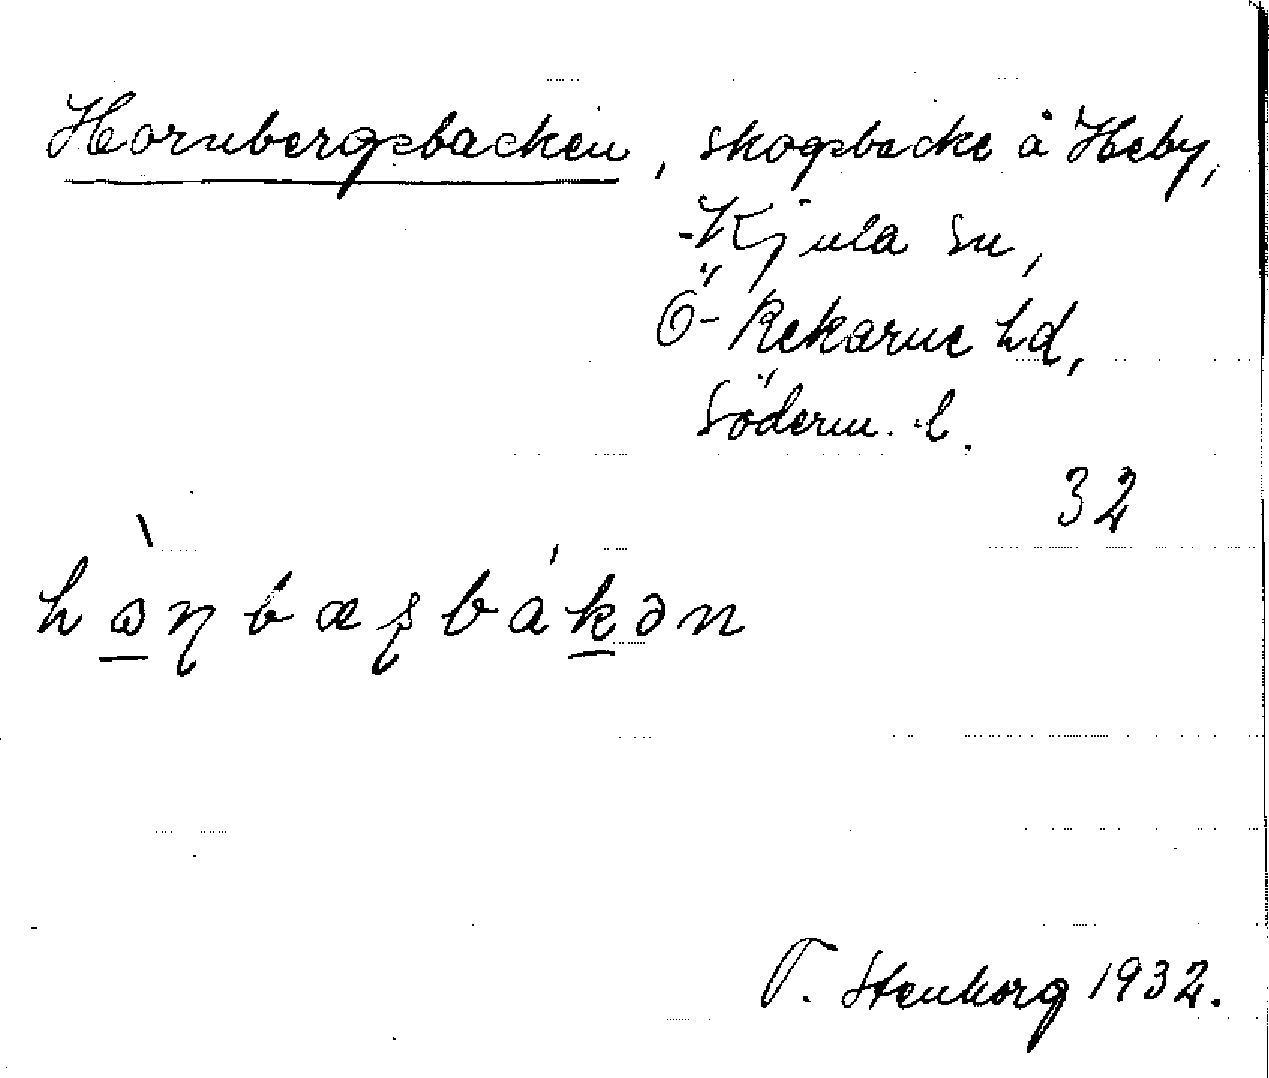 Hornbergsbacken, skogsbacke å Heby,
Kjula sn,
Ö-Rekarne hd,
Söderm. l.
32
T. Stenborg 1932.